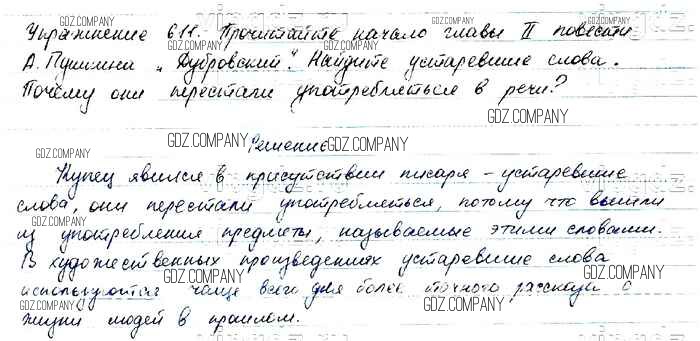 Упражнение 611. Прочитайте начало главы II повести
А. Пушкина „Дубровский“. Найдите устаревшие слова.
Почему они перестали употребляться в речи?
Решение
Купец явился в присутствии писаря – устаревшие
слова, они перестали употребляться, потому что вышли
из употребления предметы, называемые этими словами.
В художественных произведениях устаревшие слова
используются чаще всего для более точного рассказа о
жизни людей в прошлом.
GDZ.COMPANY
GDZ.COMPANY
GDZ.COMPANY
GDZ.COMPANY
GDZ.COMPANY
GDZ.COMPANY
GDZ.COMPANY
GDZ.COMPANY
GDZ.COMPANY
GDZ.COMPANY
GDZ.COMPANY
GDZ.COMPANY
GDZ.COMPANY